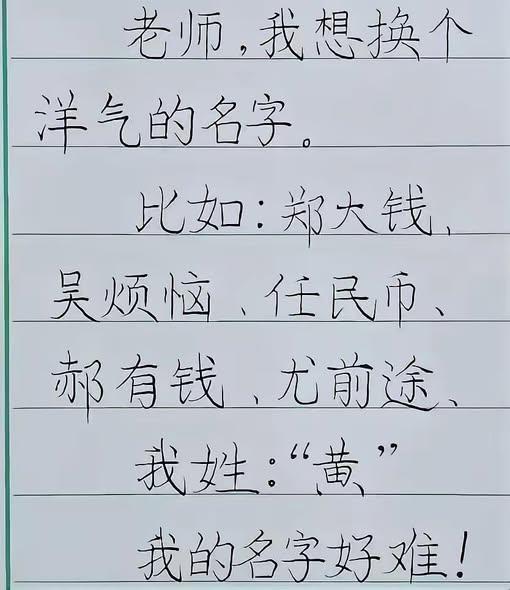 老师,我想换个
洋气的名字。
比如:郑大钱、
吴烦恼、任民币、
郝有钱、尤前途、
我姓:“黄”
我的名字好难!